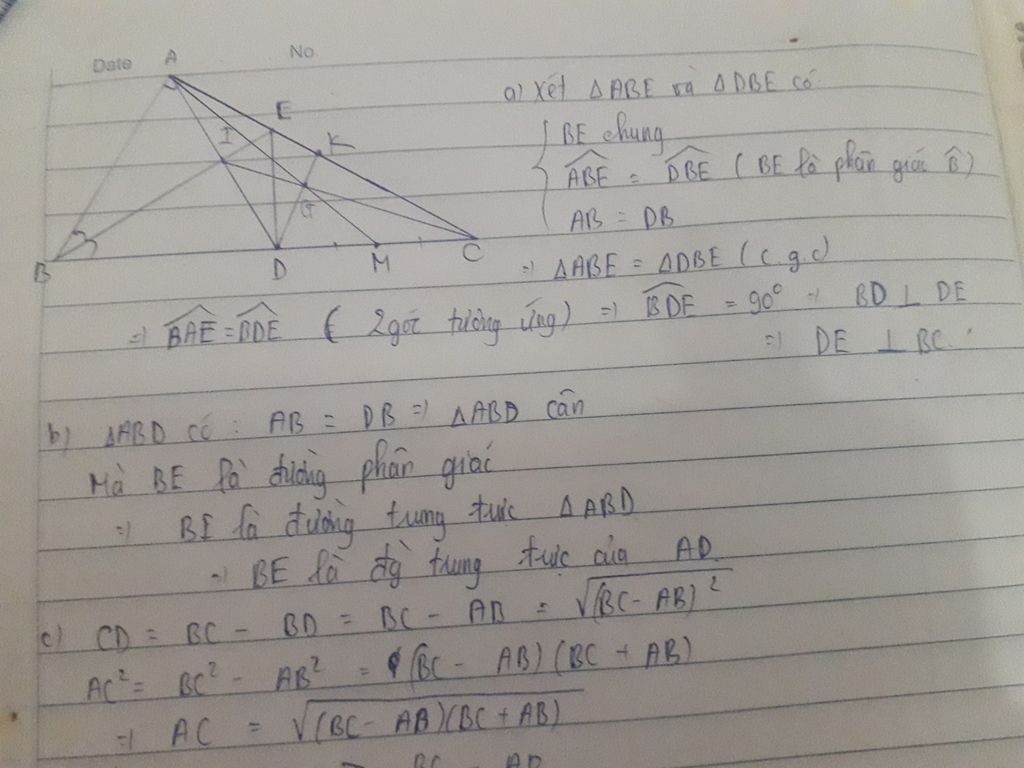 Date
No.
A
E
I
K
G
B
D
M
C
a) Xét △ABE và △DBE có
BE chung
ABE = DBE ( BE là phân giác B̂)
AB = DB
=> △ABE = △DBE ( c.g.c)
=> BAE = BDE ( 2góc tương ứng) => BDE = 90° => BD ⊥ DE
=> DE ⊥ BC
b) △ABD có : AB = DB => △ABD cân
Mà BE là đường phân giác
=> BE là đường trung trực △ABD
=> BE là đg trung trực của AD
c) CD = BC - BD = BC - AB = √(BC - AB)²
AC² = BC² - AB² = (BC - AB) (BC + AB)
=> AC = √(BC - AB)(BC + AB)
BC AB